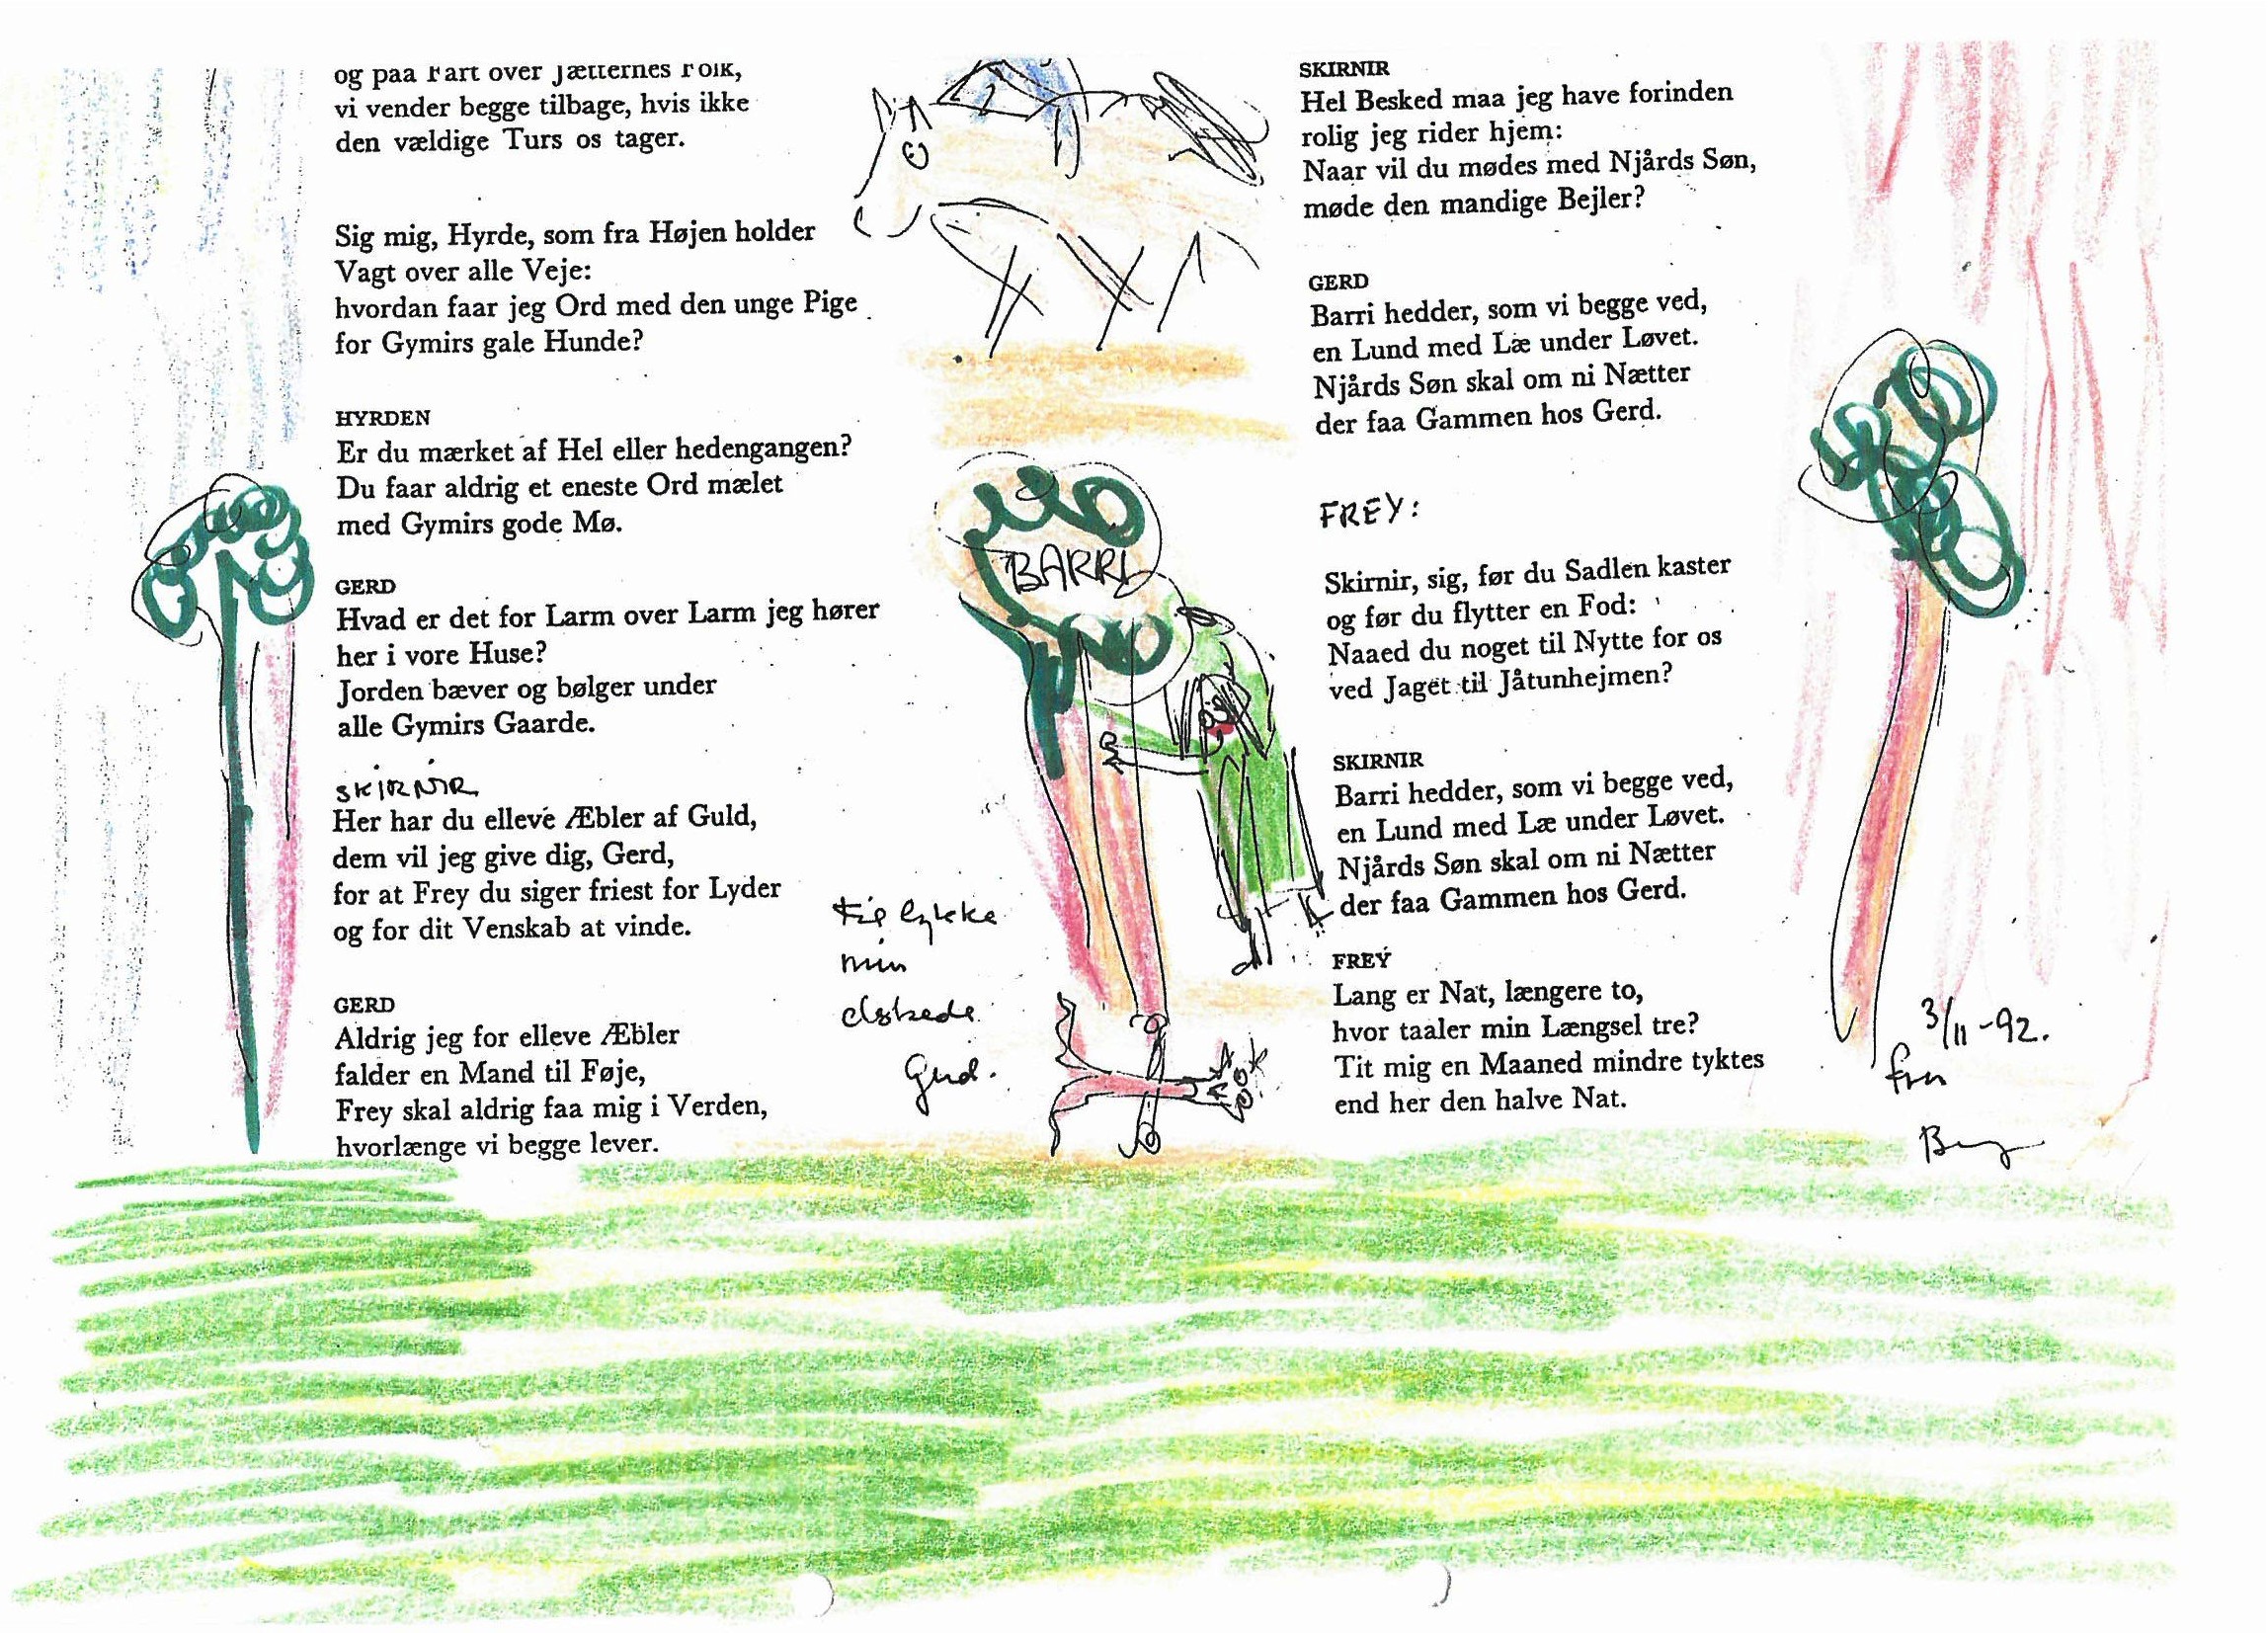 og paa Fart over Jætternes Folk,
vi vender begge tilbage, hvis ikke
den vældige Turs os tager.
Sig mig, Hyrde, som fra Højen holder
Vagt over alle Veje:
hvordan faar jeg Ord med den unge Pige
for Gymirs gale Hunde?
HYRDEN
Er du mærket af Hel eller hedengangen?
Du faar aldrig et eneste Ord mælet
med Gymirs gode Mø.
GERD
Hvad er det for Larm over Larm jeg hører
her i vore Huse?
Jorden bæver og bølger under
alle Gymirs Gaarde.
SKIRNIR
Her har du elleve Æbler af Guld,
dem vil jeg give dig, Gerd,
for at Frey du siger friest for Lyder
og for dit Venskab at vinde.
GERD
Aldrig jeg for elleve Æbler
falder en Mand til Føje,
Frey skal aldrig faa mig i Verden,
hvorlænge vi begge lever.
BARRI
Til lykke
min
elskede
Gerd.
SKIRNIR
Hel Besked maa jeg have forinden
rolig jeg rider hjem:
Naar vil du mødes med Njårds Søn,
møde den mandige Bejler?
GERD
Barri hedder, som vi begge ved,
en Lund med Læ under Løvet.
Njårds Søn skal om ni Nætter
der faa Gammen hos Gerd.
FREY:
Skirnir, sig, før du Sadlen kaster
og før du flytter en Fod:
Naaed du noget til Nytte for os
ved Jaget til Jåtunhejmen?
SKIRNIR
Barri hedder, som vi begge ved,
en Lund med Læ under Løvet.
Njårds Søn skal om ni Nætter
der faa Gammen hos Gerd.
FREY
Lang er Nat, længere to,
hvor taaler min Længsel tre?
Tit mig en Maaned mindre tyktes
end her den halve Nat.
3/11-92.
fra